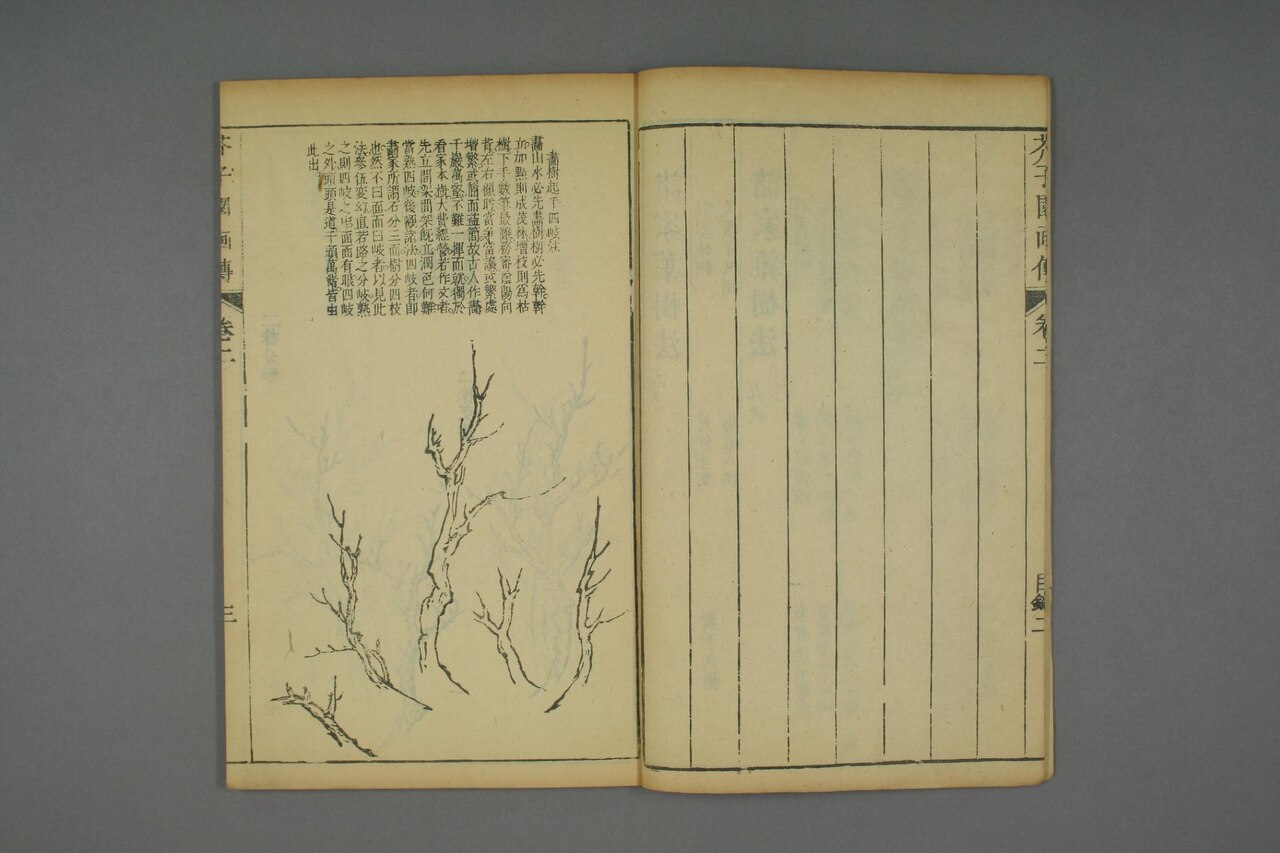 芥子園画傳 卷二 目錄二
畫樹起手四岐法
畫山水必先畫樹樹必先幹幹
立加點則成茂林增枝則爲枯
樹下手數筆最難務審陰陽向
背左右顧盼當爭當讓或繁處
增繁或簡而益簡故古人作畫
千巖萬壑不難一揮而就獨於
看家本樹大費經營若作文者
先立間架間架既立潤色何難
當熟四岐後觀諸法四岐者即
畫家所謂石分三面樹分四枝
也然不曰面而曰岐者以見此
法參伍變幻直若路之分岐熟
之則四岐之中面面有眼四岐
之外頭頭是道千頭萬緒皆由
此出
芥子園画傳 卷二 三